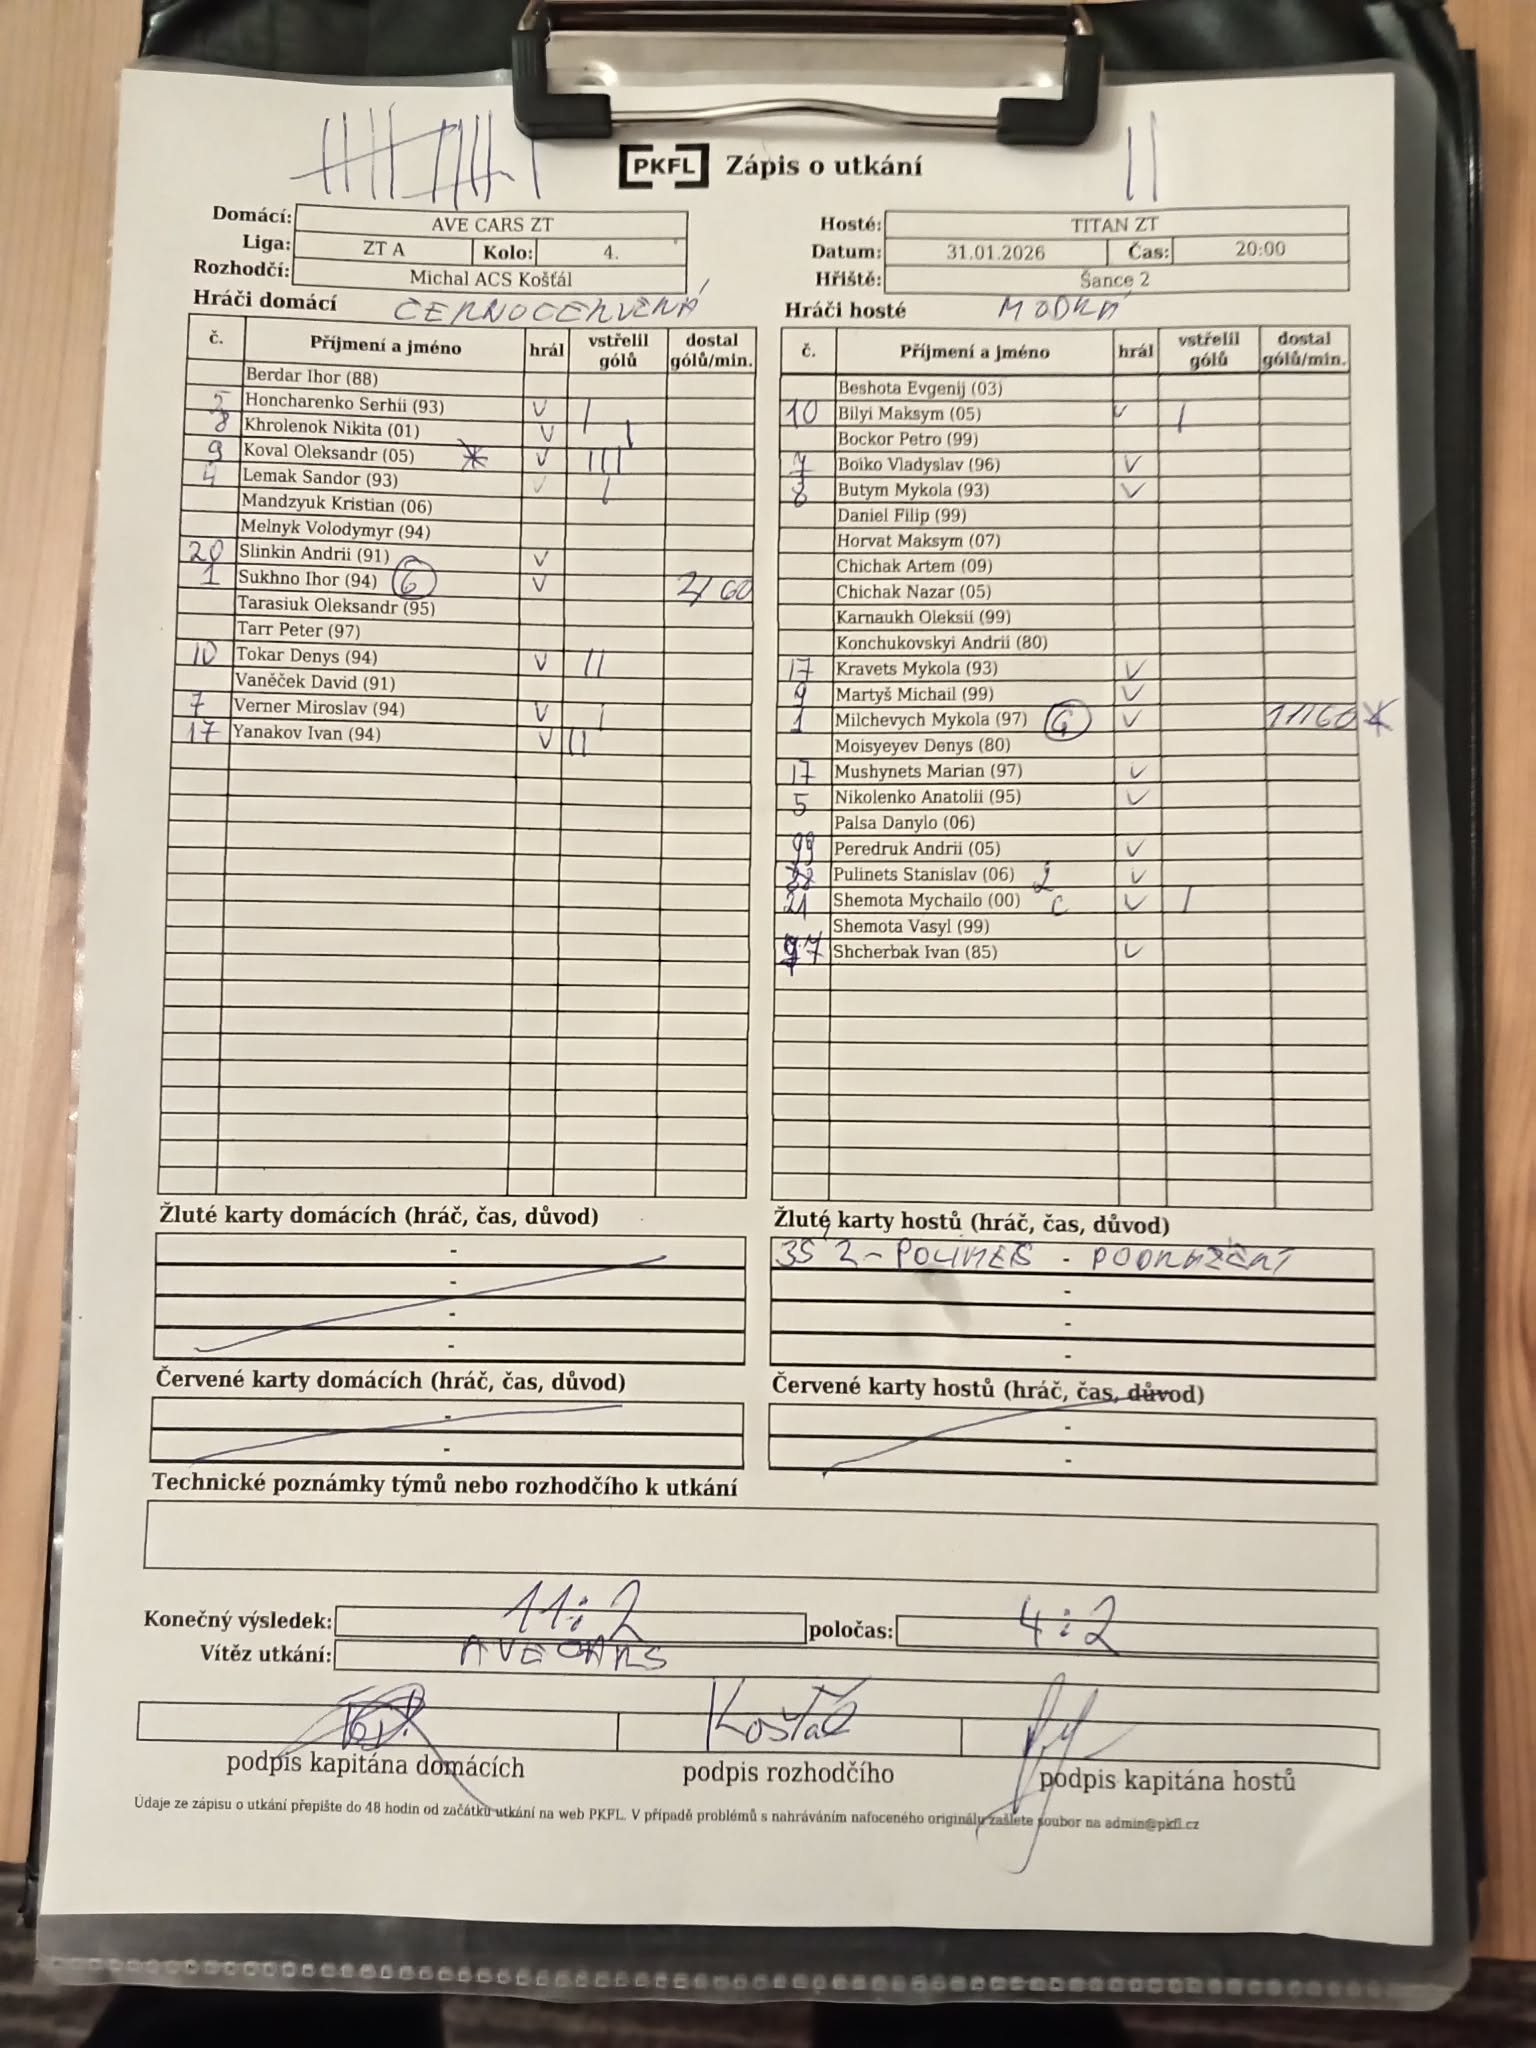 PKFL Zápis o utkání
Domácí: AVE CARS ZT Hosté: TITAN ZT
Liga: ZT A Kolo: 4. Datum: 31.01.2026 Čas: 20:00
Rozhodčí: Michal ACS Košťál Hřiště: Šance 2
Hráči domácí ČERNOČERVENÁ Hráči hosté MODRÁ
č. Příjmení a jméno hrál vstřelil gólů dostal gólů/min.
Berdar Ihor (88)
5 Honcharenko Serhii (93) V I
8 Khrolenok Nikita (01) V I
9 Koval Oleksandr (05) * V III
4 Lemak Sandor (93) V I
Mandzyuk Kristian (06)
Melnyk Volodymyr (94)
20 Slinkin Andrii (91) V
1 Sukhno Ihor (94) G V 2/60
Tarasiuk Oleksandr (95)
Tarr Peter (97)
10 Tokar Denys (94) V II
Vaněček David (91)
7 Verner Miroslav (94) V I
17 Yanakov Ivan (94) V II
č. Příjmení a jméno hrál vstřelil gólů dostal gólů/min.
Beshota Evgenij (03)
10 Bilyi Maksym (05) V I
Bockor Petro (99)
7 Boiko Vladyslav (96) V
8 Butym Mykola (93) V
Daniel Filip (99)
Horvat Maksym (07)
Chichak Artem (09)
Chichak Nazar (05)
Karnaukh Oleksii (99)
Konchukovskyi Andrii (80)
17 Kravets Mykola (93) V
9 Martyš Michail (99) V
1 Milchevych Mykola (97) G V 11/60 *
Moisyeyev Denys (80)
17 Mushynets Marian (97) V
5 Nikolenko Anatolii (95) V
Palsa Danylo (06)
99 Peredruk Andrii (05) V
Pulinets Stanislav (06) V
21 Shemota Mychailo (00) C V I
Shemota Vasyl (99)
Shcherbak Ivan (85) V
Žluté karty domácích (hráč, čas, důvod) Žluté karty hostů (hráč, čas, důvod)
- 35 2 - - PODRAŽENÍ
- -
- -
- -
Červené karty domácích (hráč, čas, důvod) Červené karty hostů (hráč, čas, důvod)
- -
- -
Technické poznámky týmů nebo rozhodčího k utkání
Konečný výsledek: 11:2 poločas: 4:2
Vítěz utkání: AVE CARS
Košťál
podpis kapitána domácích podpis rozhodčího podpis kapitána hostů
Údaje ze zápisu o utkání přepište do 48 hodin od začátku utkání na web PKFL. V případě problémů s nahráváním nafoceného originálu zašlete soubor na admin@pkfl.cz